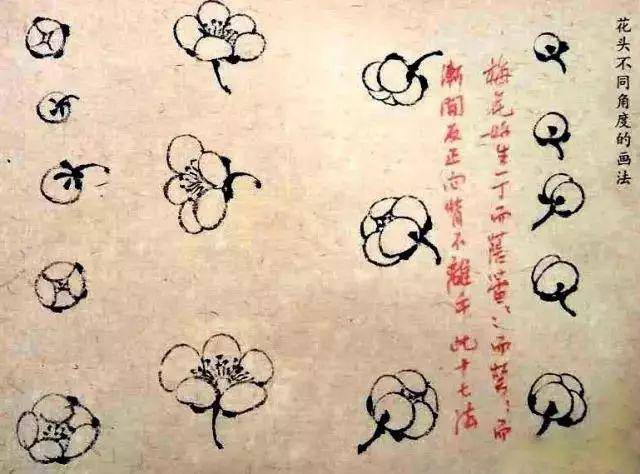 花头不同角度的画法
梅花始生一丁而蓓蕾〻而萼〻而
漸開反正向背不離乎此十七法